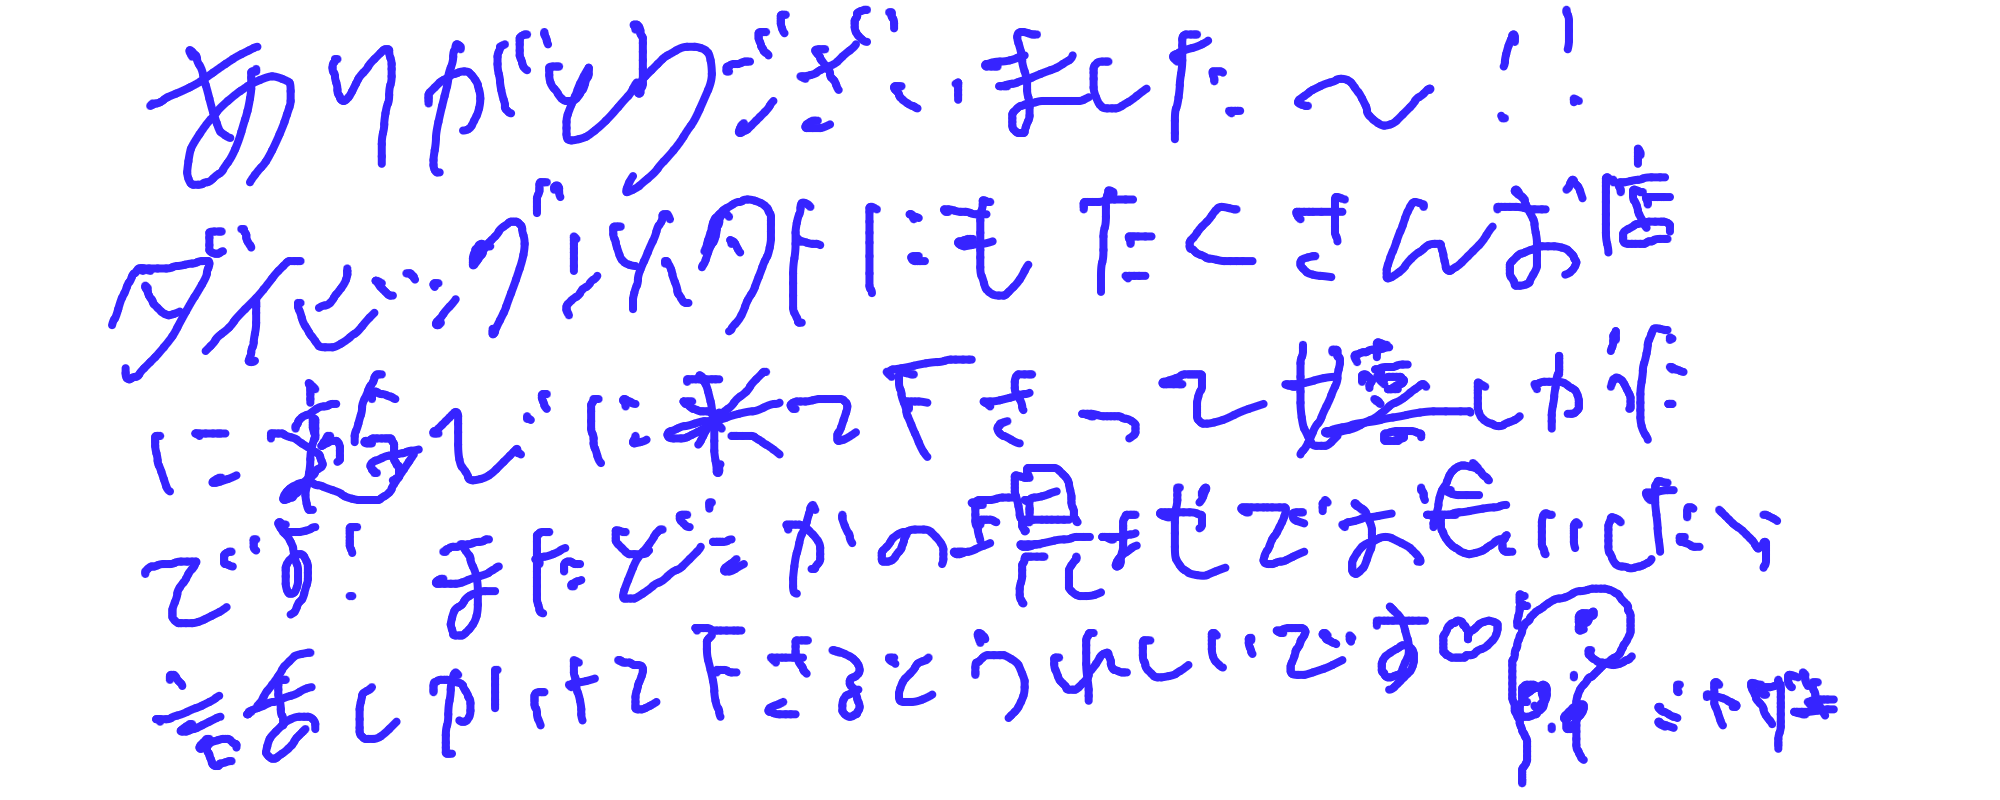 ありがとうございました〜!!
ダイビング以外にもたくさんお店
に遊びに来て下さって嬉しかた
です! またどこかの現場でお会いしたら
話しかけて下さるとうれしいです♡